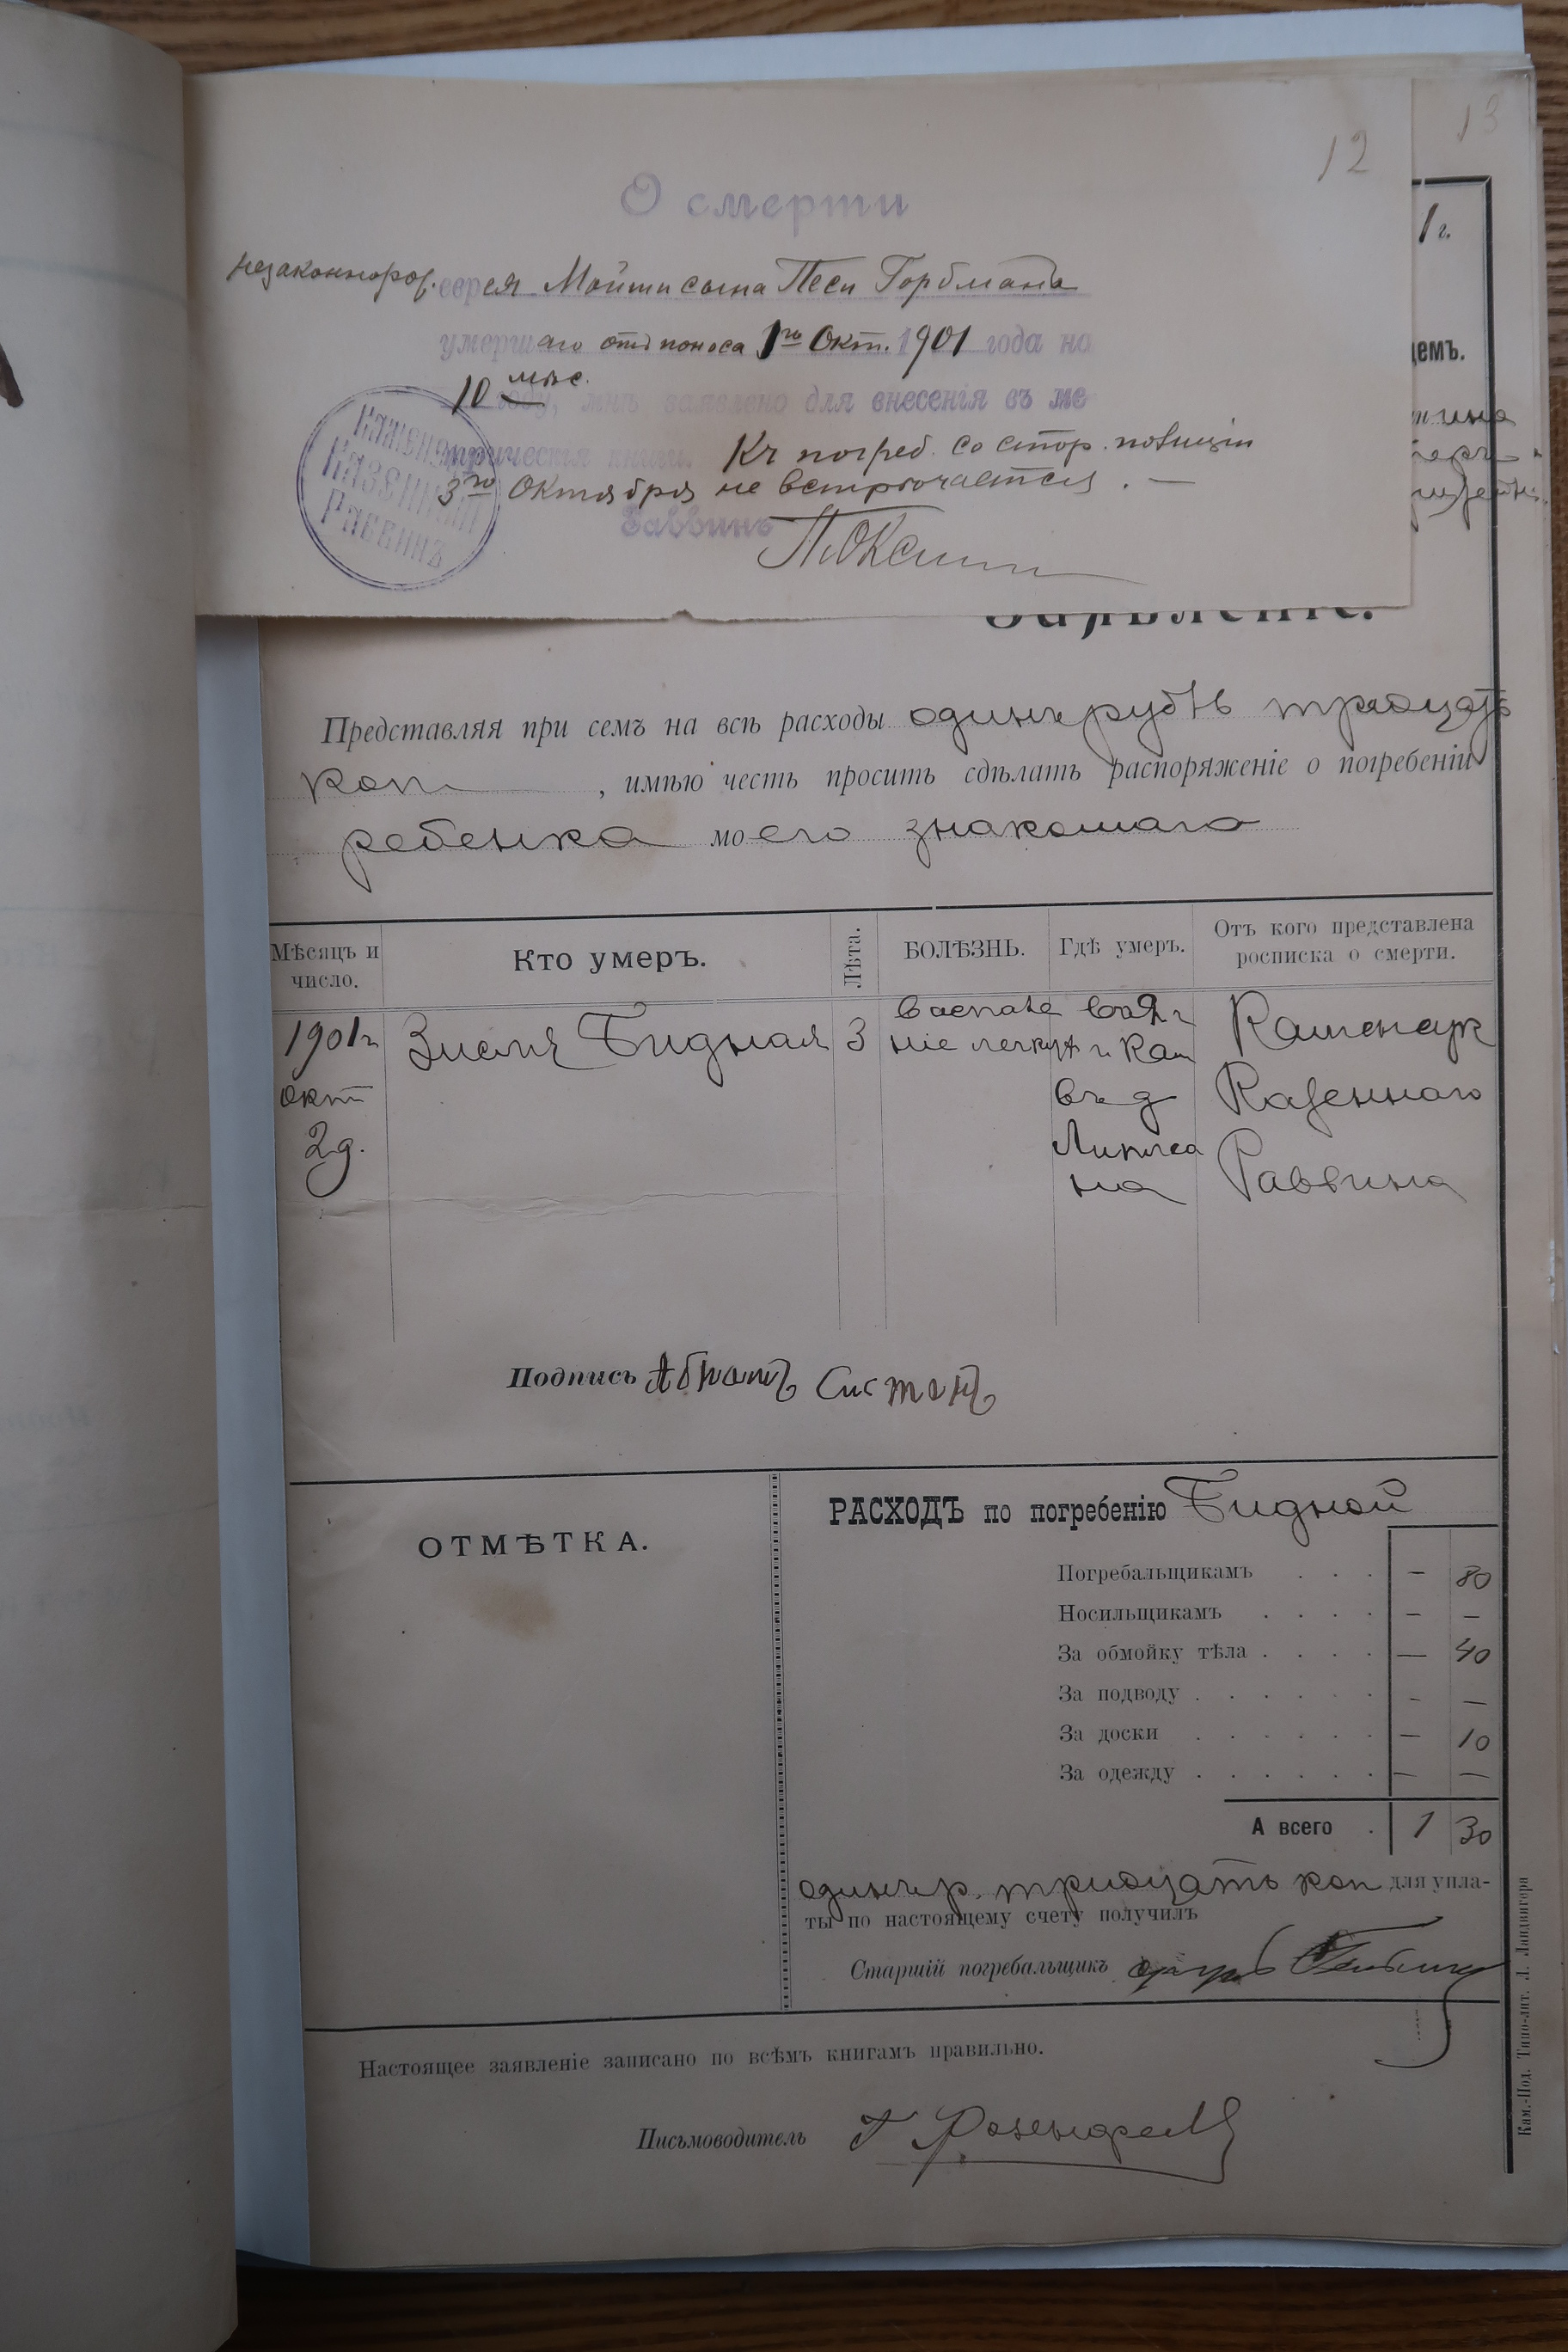 12
13
О смерти
незаконнорож. еврея Мойши сына Песи Горбмана
умершаго отъ поноса 1го Окт. 1901 года на
10 мѣс. году, мнѣ заявлено для внесенія въ ме
трическія книги. Къ погреб. со стор. полиціи
3го Октября не встрѣчается. —
Раввинъ
Каменецкій
Казенный
Раввинъ
1 г.
Заявленіе.
Представляя при семъ на всѣ расходы одинъ рубль тридцать
коп , имѣю честь просить сдѣлать распоряженіе о погребеніи
ребенка моего знакомаго
Мѣсяцъ и число. Кто умеръ. Лѣта. БОЛѢЗНЬ. Гдѣ умеръ. Отъ кого представлена росписка о смерти.
1901 г Бидная 3 воспале
окт ніе легкихъ г Кам Казеннаго
2 д. въ д Раввина
Подпись Абрамъ
ОТМѢТКА.
РАСХОДЪ по погребенію Бидной
Погребальщикамъ . . . — 80
Носильщикамъ . . . . — —
За обмойку тѣла . . . . — 40
За подводу . . . . . . — —
За доски . . . . . . — 10
За одежду . . . . . . — —
А всего . 1 30
одинъ р. тридцать коп для упла-
ты по настоящему счету получилъ
Старшій погребальщикъ
Настоящее заявленіе записано по всѣмъ книгамъ правильно.
Письмоводитель Г Розенфельд
Кам.-Под. Типо-лит. Л. Ландвигера